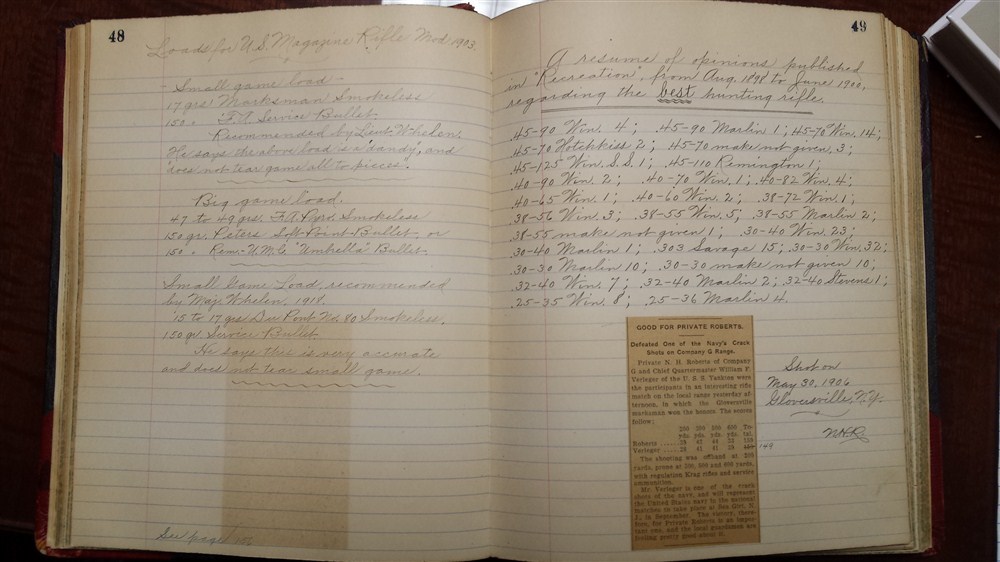 48
Loads for U.S. Magazine Rifle Mod. 1903.
Small game load -
17 grs. Marksman Smokeless
150 " F.A. Service Bullet.
Recommended by Lieut. Whelen.
He says the above load is a "candy", and
"does not tear game all to pieces".
Big game load.
47 to 49 grs. F.A. Pyro. Smokeless
150 gr. Peters Soft Point Bullet, or
150 " Rem-U.M.C. "Umbrella" Bullet.
Small Game Load, recommended
by Maj. Whelen, 1918.
15 to 17 grs. Du Pont No. 80 Smokeless.
150 gr. Service Bullet.
He says this is very accurate
and does not tear small game.
See page
49
A resume of opinions published
in "Recreation", from Aug. 1898 to June 1900,
regarding the best hunting rifle.
.45-90 Win. 4; .45-90 Marlin 1; .45-70 Win. 14;
.45-70 Hotchkiss 2; .45-70 make not given, 3;
.45-125 Win. S.S. 1; .45-110 Remington 1;
.40-90 Win. 2; .40-70 Win. 1; .40-82 Win. 4;
.40-65 Win. 1; .40-60 Win. 2; .38-72 Win. 1;
.38-56 Win. 3; .38-55 Win. 5; .38-55 Marlin 2;
.38-55 make not given 1; .30-40 Win. 23;
.30-40 Marlin 1; .303 Savage 15; .30-30 Win. 32;
.30-30 Marlin 10; .30-30 make not given 10;
.32-40 Win. 7; .32-40 Marlin 2; .32-40 Stevens 1;
.25-35 Win. 8; .25-36 Marlin 4.
GOOD FOR PRIVATE ROBERTS.
Defeated One of the Navy's Crack
Shots on Company G Range.
Private N. H. Roberts of Company
G and Chief Quartermaster William F.
Verleger of the U. S. S. Yankee were
the participants in an interesting rifle
match on the local range yesterday af-
ternoon, in which the Gloversville
marksman won the honors. The scores
follow:
200 300 500 600 To-
yds. yds. yds. yds. tal.
Roberts
Verleger 149
The shooting was offhand at 200
yards, prone at 300, 500 and 600 yards,
with regulation Krag rifles and service
ammunition.
Mr. Verleger is one of the crack
shots of the navy, and will represent
the United States navy in the national
matches to take place at Sea Girt, N.
J., in September. The victory, there-
fore, for Private Roberts is an impor-
tant one, and the local guardsmen are
feeling pretty good about it.
Shot on
May 30, 1906
Gloversville, N.Y.
N.H.R.